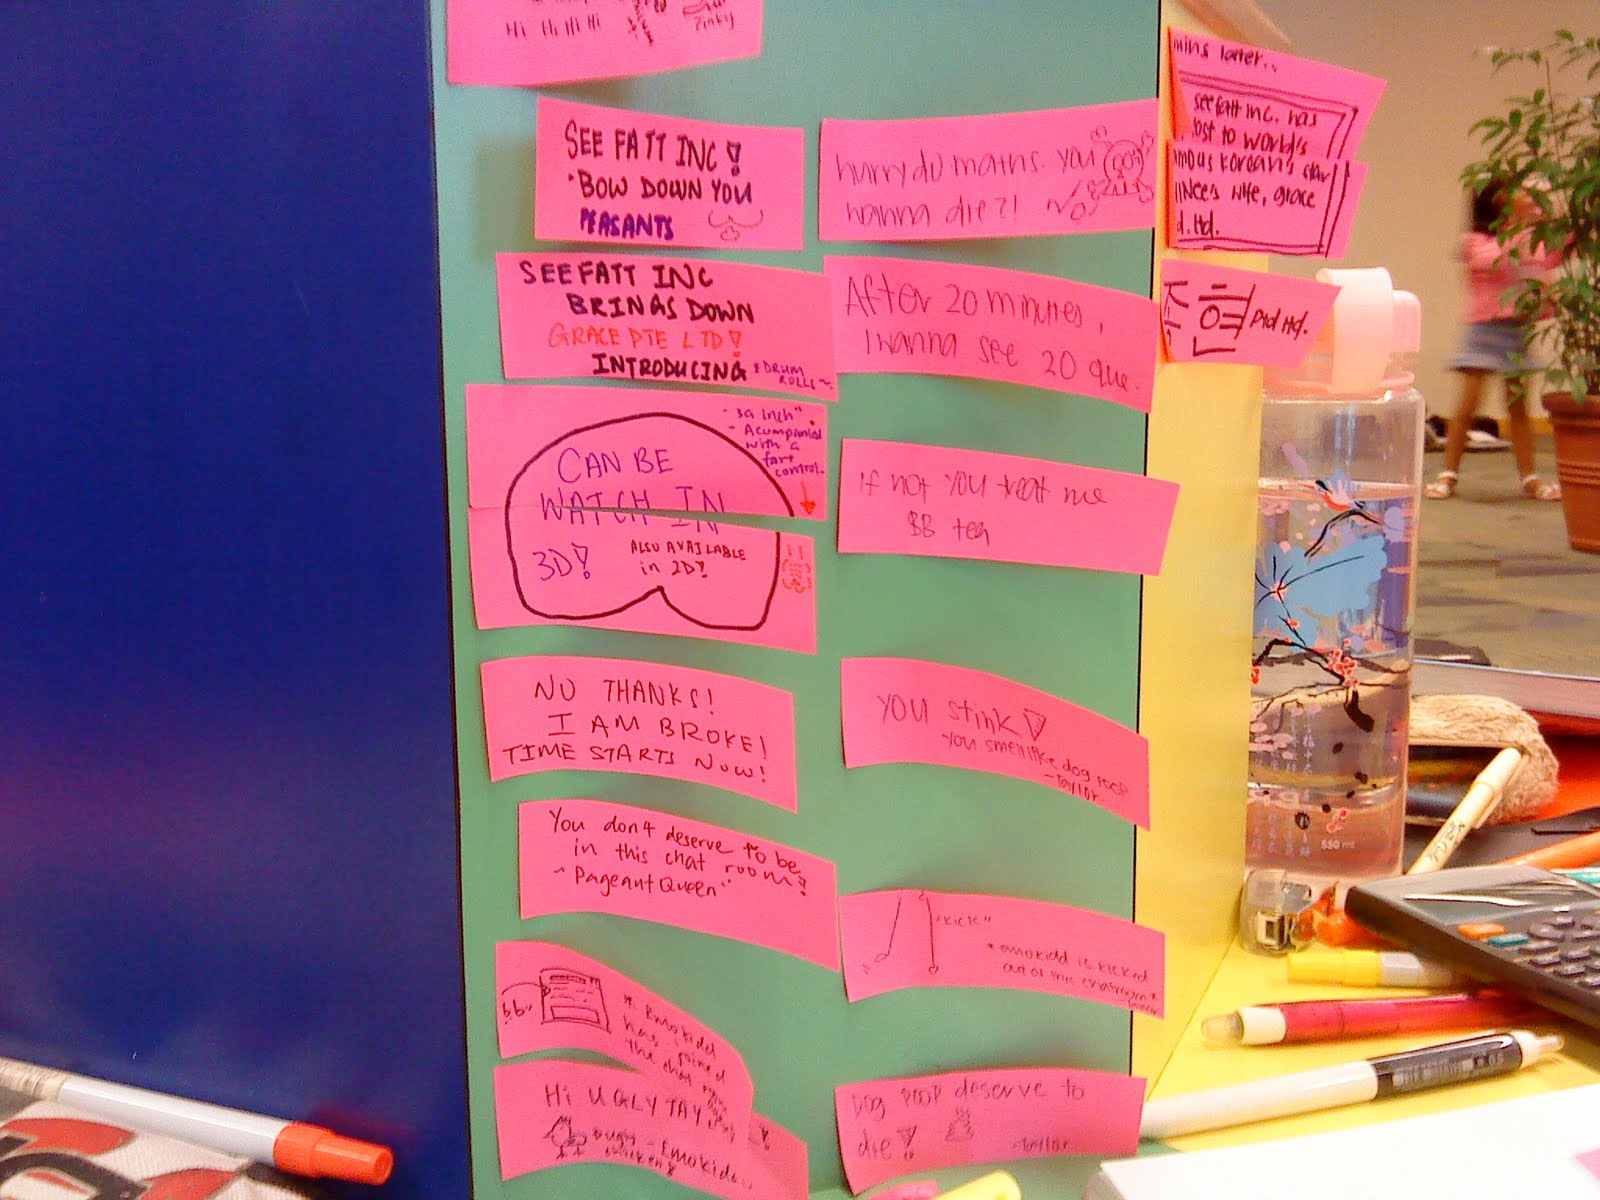 Hi Hi Hi Hi
Pinky
SEE FATT INC!
"BOW DOWN YOU
PEASANTS
SEE FATT INC
BRINGS DOWN
GRACE PTE LTD!
INTRODUCING
*DRUM
ROLLS~
- 3a inch"
- Acumpanied
with a
fart
control.
CAN BE
WATCH IN
3D!
ALSO AVAILABLE
in 2D!
NO THANKS!
I AM BROKE!
TIME STARTS NOW!
You don't deserve to be
in this chat room!
~ Pageant Queen"
* Emokidd
has joined
the chat room
Hi UGLY TAY
ugly
chicken
- Emokidd
hurry do maths. you
wanna die?!
After 20 minutes,
I wanna see 20 que.
If not you treat me
BB tea
You stink!
You smell like dog poop
-Taylor
"KICK"
* emokidd is kicked
out of this chatroom *
Dog poop deserve to
die!
-Taylor
mins later...
see fatt inc. has
lost to world's
Korean's star
wife, grace
d. ltd.
준현 Ptd ltd.
550 ml
0.5